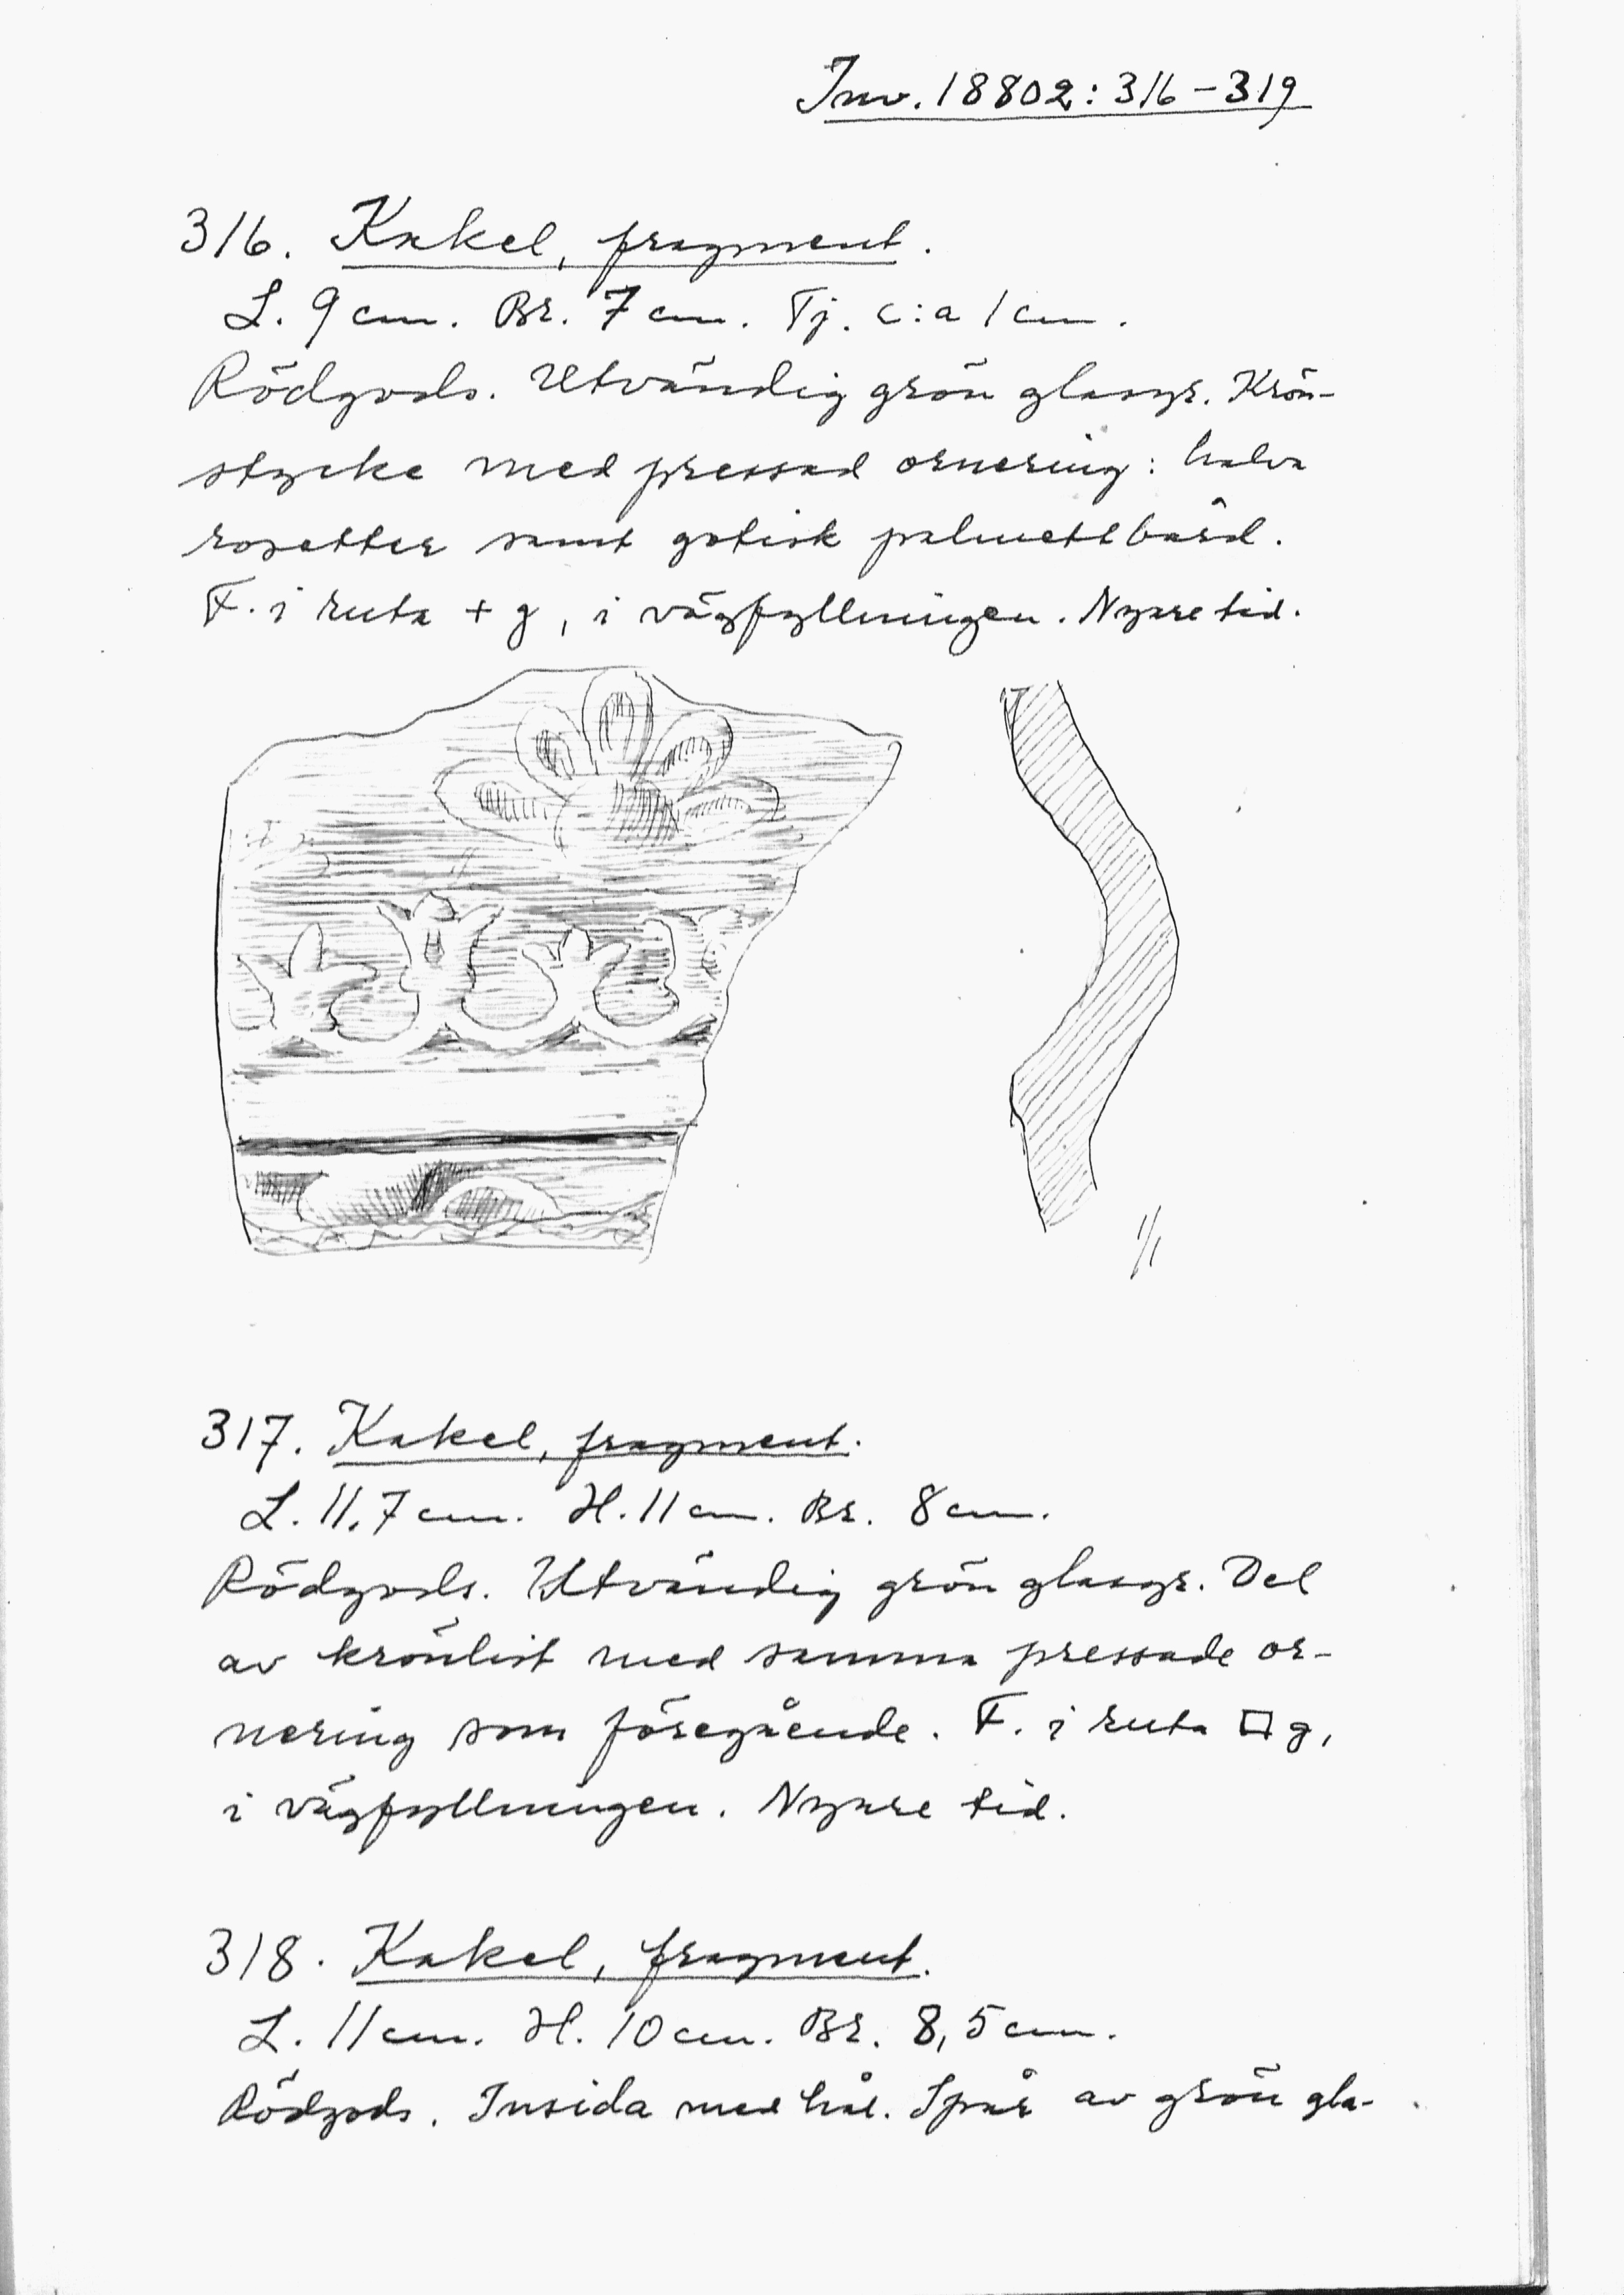 Inv. 18802:316-319
316. Kakel, fragment.
L. 9 cm. Br. 7 cm. Tj. c:a 1 cm.
Rödgods. Utvändig grön glasyr. Krön-
stycke med pressad ornering: halva
rosetter samt gotisk palmettbård.
F. i ruta + g, i vägfyllningen. Nyare tid.
1/1
317. Kakel, fragment.
L. 11,7 cm. H. 11 cm. Br. 8 cm.
Rödgods. Utvändig grön glasyr. Del
av krönlist med samma pressade or-
nering som föregående. F. i ruta □ g,
i vägfyllningen. Nyare tid.
318. Kakel, fragment.
L. 11 cm. H. 10 cm. Br. 8,5 cm.
Rödgods. Insida med hål. Spår av grön gla-